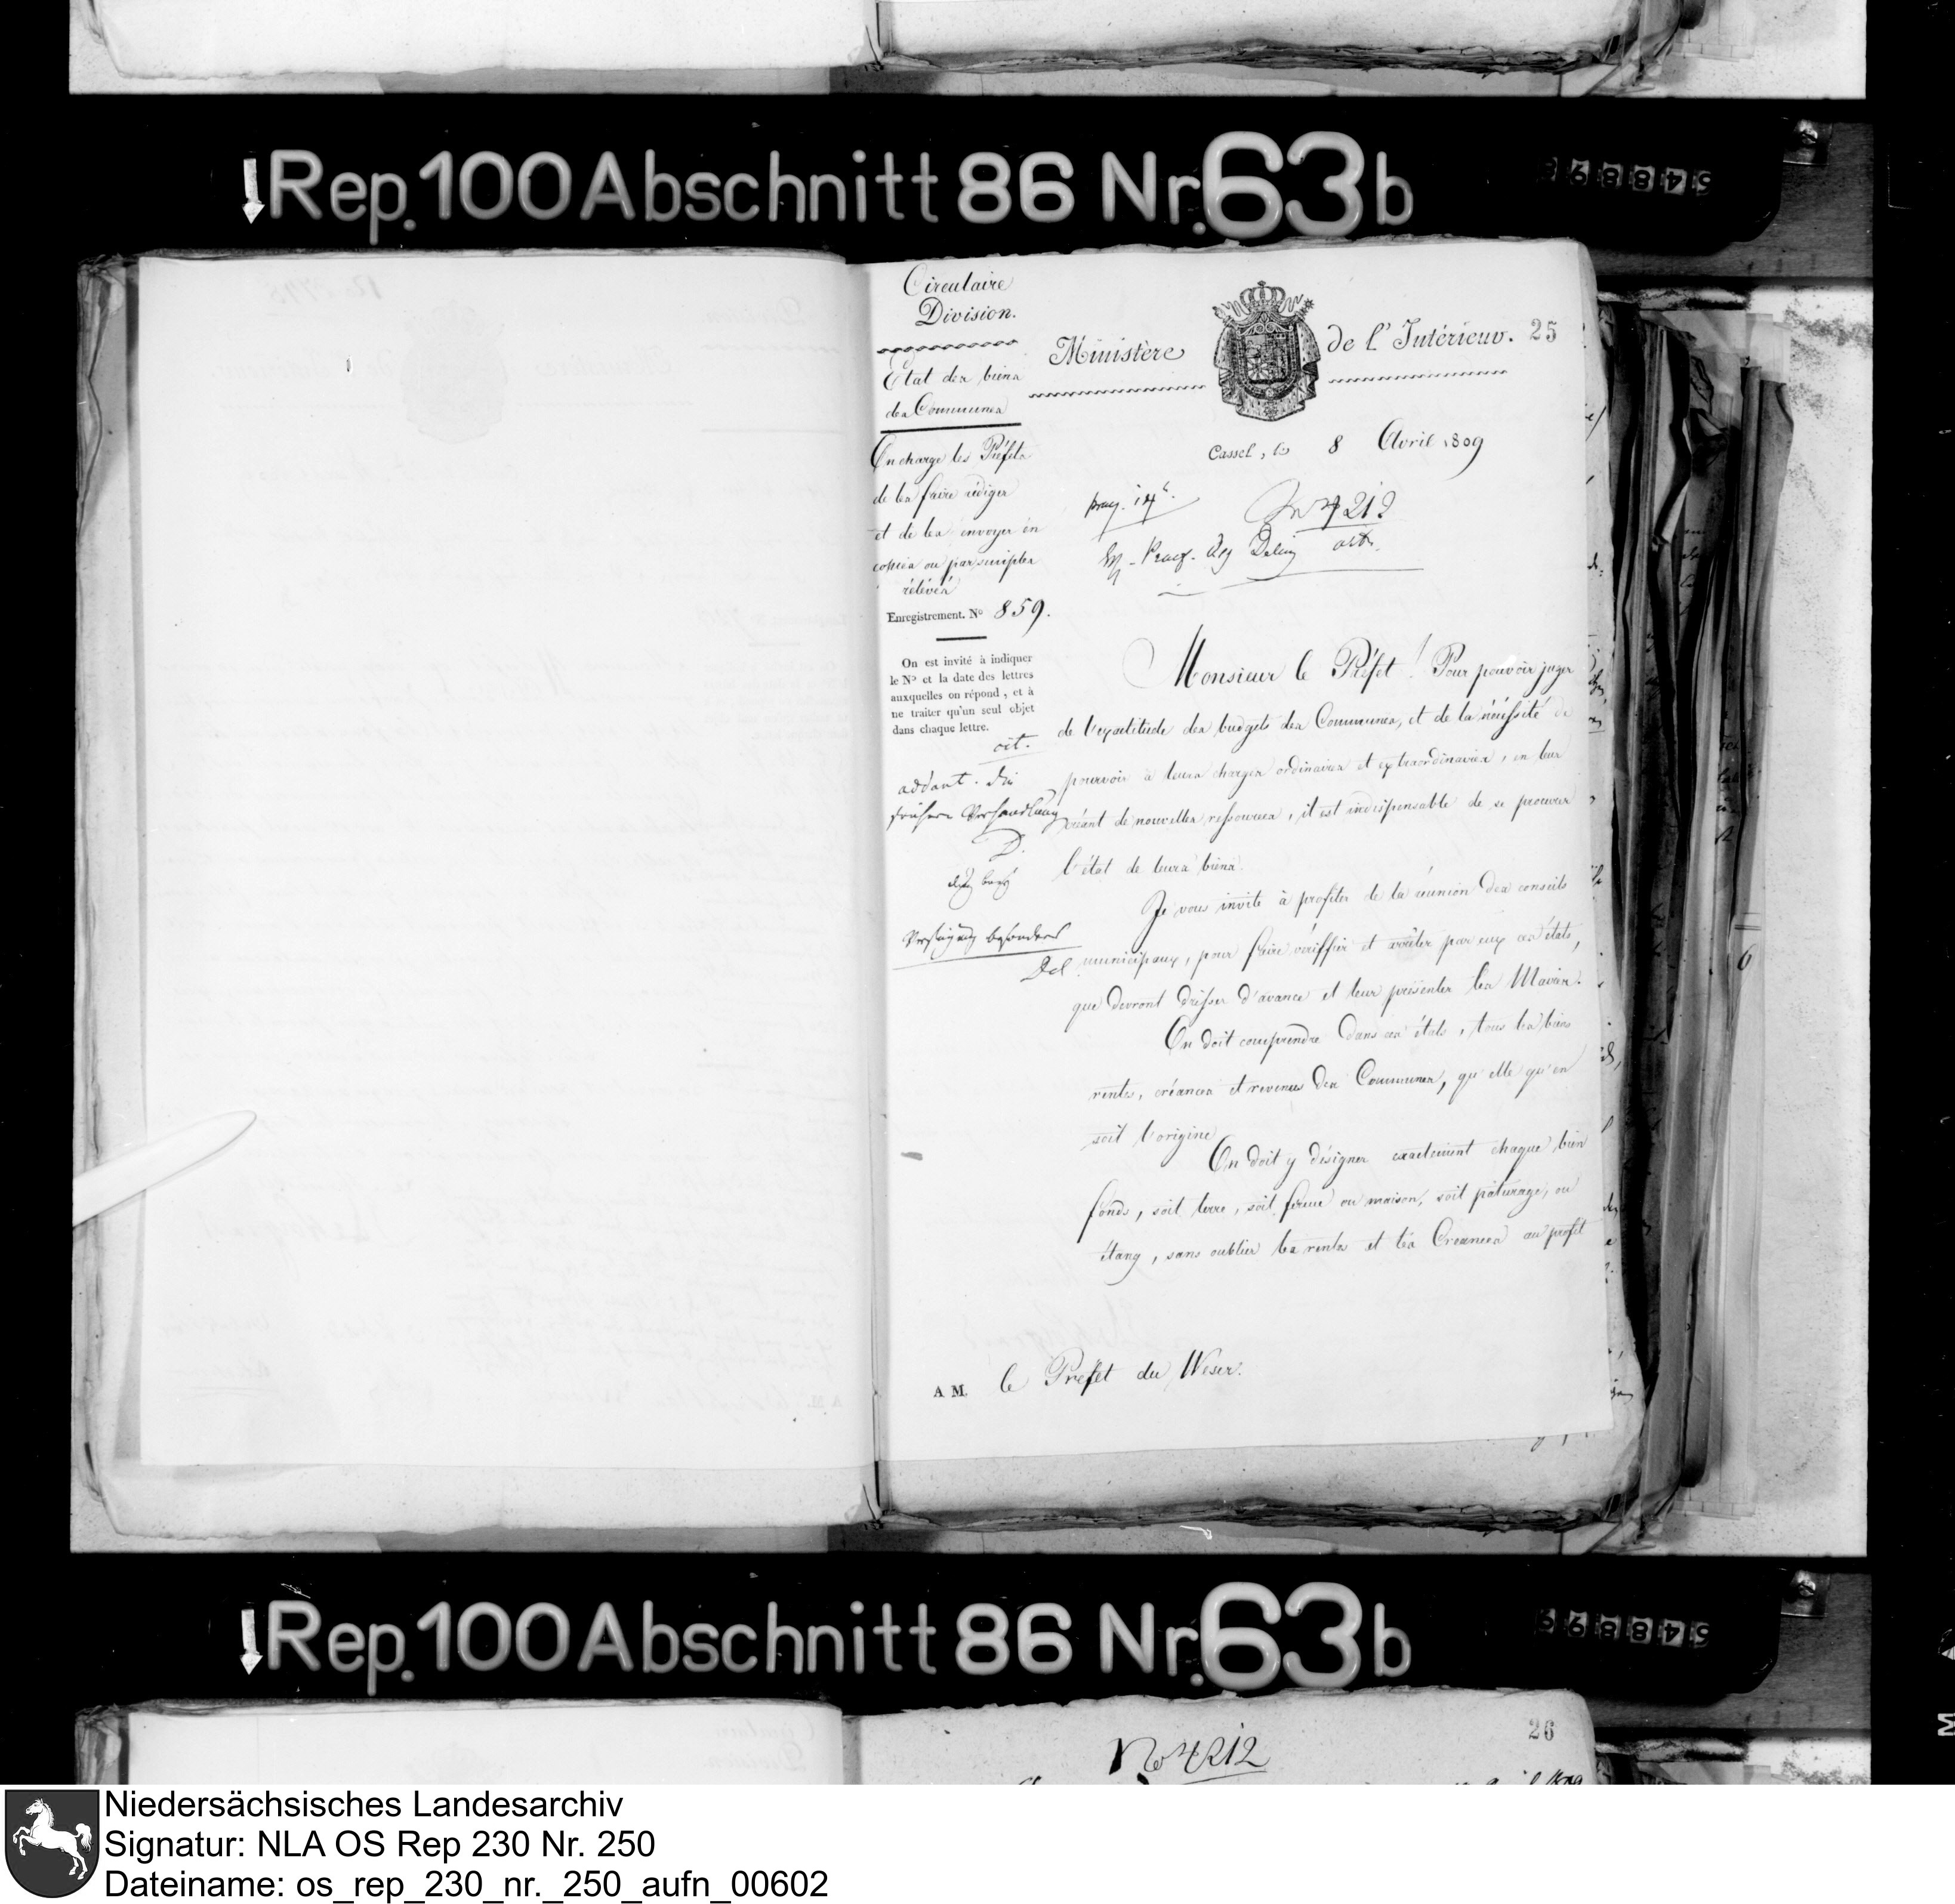 Rep. 100 Abschnitt 86 Nr. 63b
548899
Circulaire
Division.
Ministère de l'Intérieur. 25
Etat des biens
des Communes
Cassel, le 8 Avril 1809
On charge les Préfets
de les faire rédiger
et de les envoyer en
copies ou par simples
rélévés
praes. 14
No 4212
Enregistrement. No 859.
On est invité à indiquer
le No et la date des lettres
auxquelles on répond, et à
ne traiter qu'un seul objet
dans chaque lettre.
cit.
frühere Verhandlung
Verfügung besonders
Monsieur le Préfet! Pour pouvoir juger
de l'exactitude des budgets des Communes, et de la nécessité de
pourvoir à leurs charges ordinaires et extraordinaires, en leur
créant de nouvelles ressources, il est indispensable de se procurer
l'état de leurs biens.
Je vous invite à profiter de la réunion des conseils
municipaux, pour faire vériffier et arrêter par eux ces états,
que devront dresser d'avance et leur présenter les Maires.
On doit comprendre dans ces états, tous les biens
rentes, créances et revenus des Communes, qu'elle qu'en
soit l'origine
On doit y désigner exactement chaque bien
fonds, soit terre, soit ferme ou maison, soit pâturage, ou
étang, sans oublier les rentes et les Créances au profit
A M. le Préfet du Weser.
Rep. 100 Abschnitt 86 Nr. 63b
548899
26
No 4212
Niedersächsisches Landesarchiv
Signatur: NLA OS Rep 230 Nr. 250
Dateiname: os_rep_230_nr._250_aufn_00602